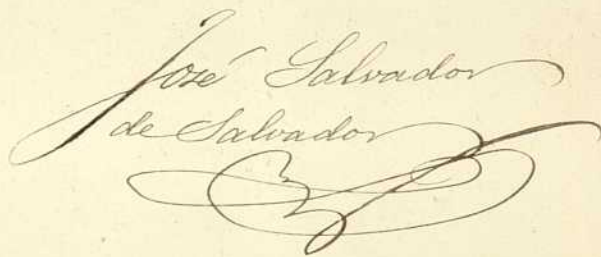 José Salvador
de Salvador